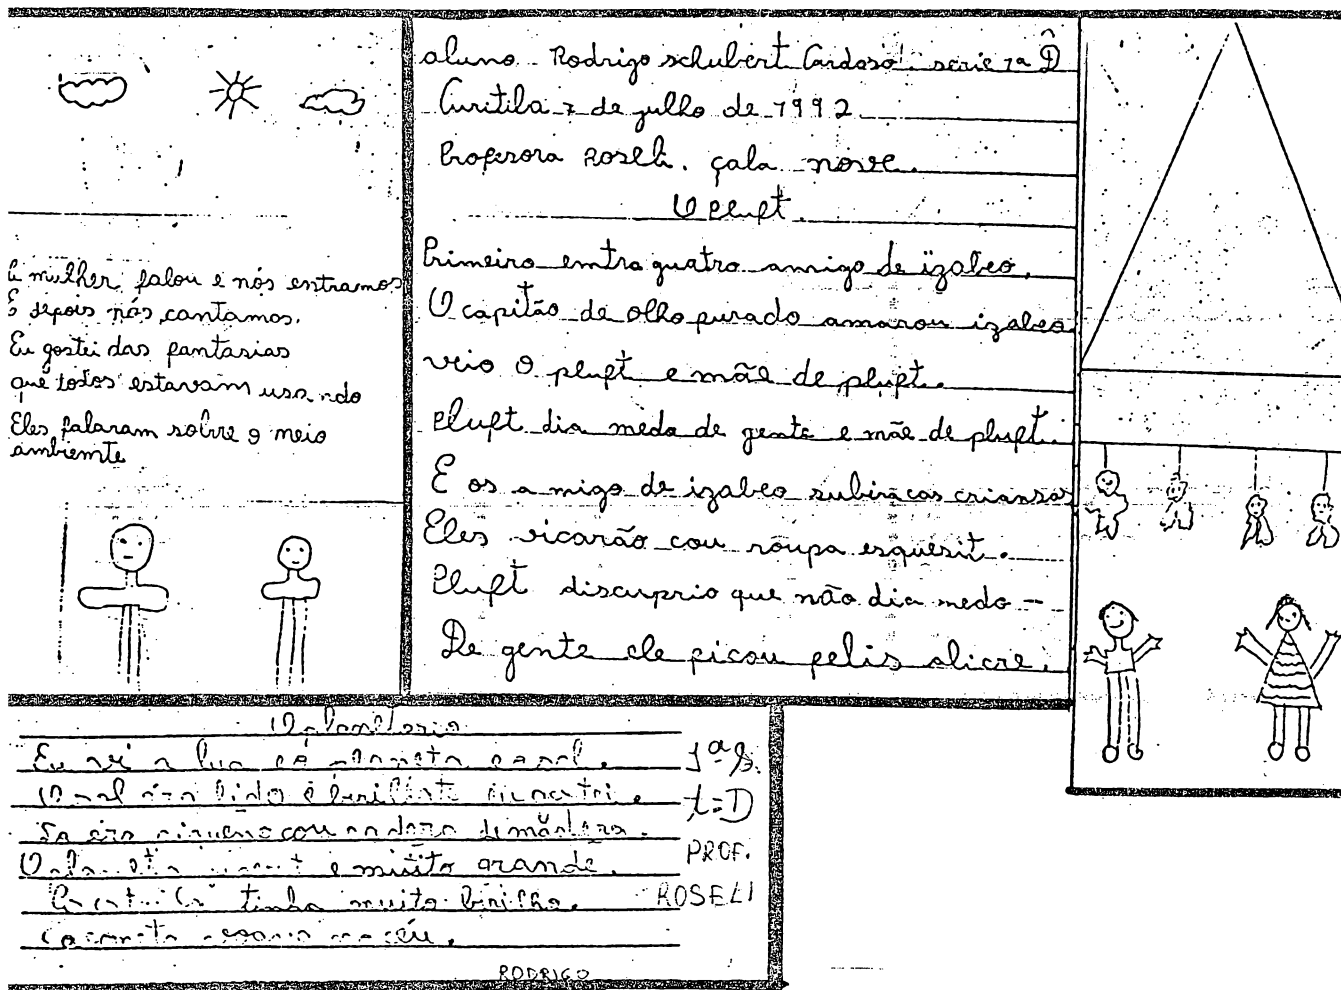 A mulher falou e nós entramos
E depois nós cantamos.
Eu gostei das fantasias
que todos estavam usando
Eles falaram sobre o meio
ambiemte
aluno Rodrigo schubert Cardoso. serie 1ª D
Curitiba 7 de julho de 1992
Profesora Roseli. çala nove.
O Pluft.
Primeiro emtra quatro amigo de izabeo.
O capitão de olho purado amarou izabeo
veio o pluft e mãe de pluft.
Pluft dia medo de gente e mãe de pluft.
E os amigo de izabeo subira cas criansas
Eles vicarão cou roupa esquesit.
Pluft discuprio que não dia medo -
De gente ele picou pelis alicre.
O planetario
Eu vi a lua e o planeta e a sol.
O sol era lido e
cou madera.
O e muito grande.
tinha muito birilho.
no céu.
1ª S.
t=D
PROF.
ROSELI
RODRIGO